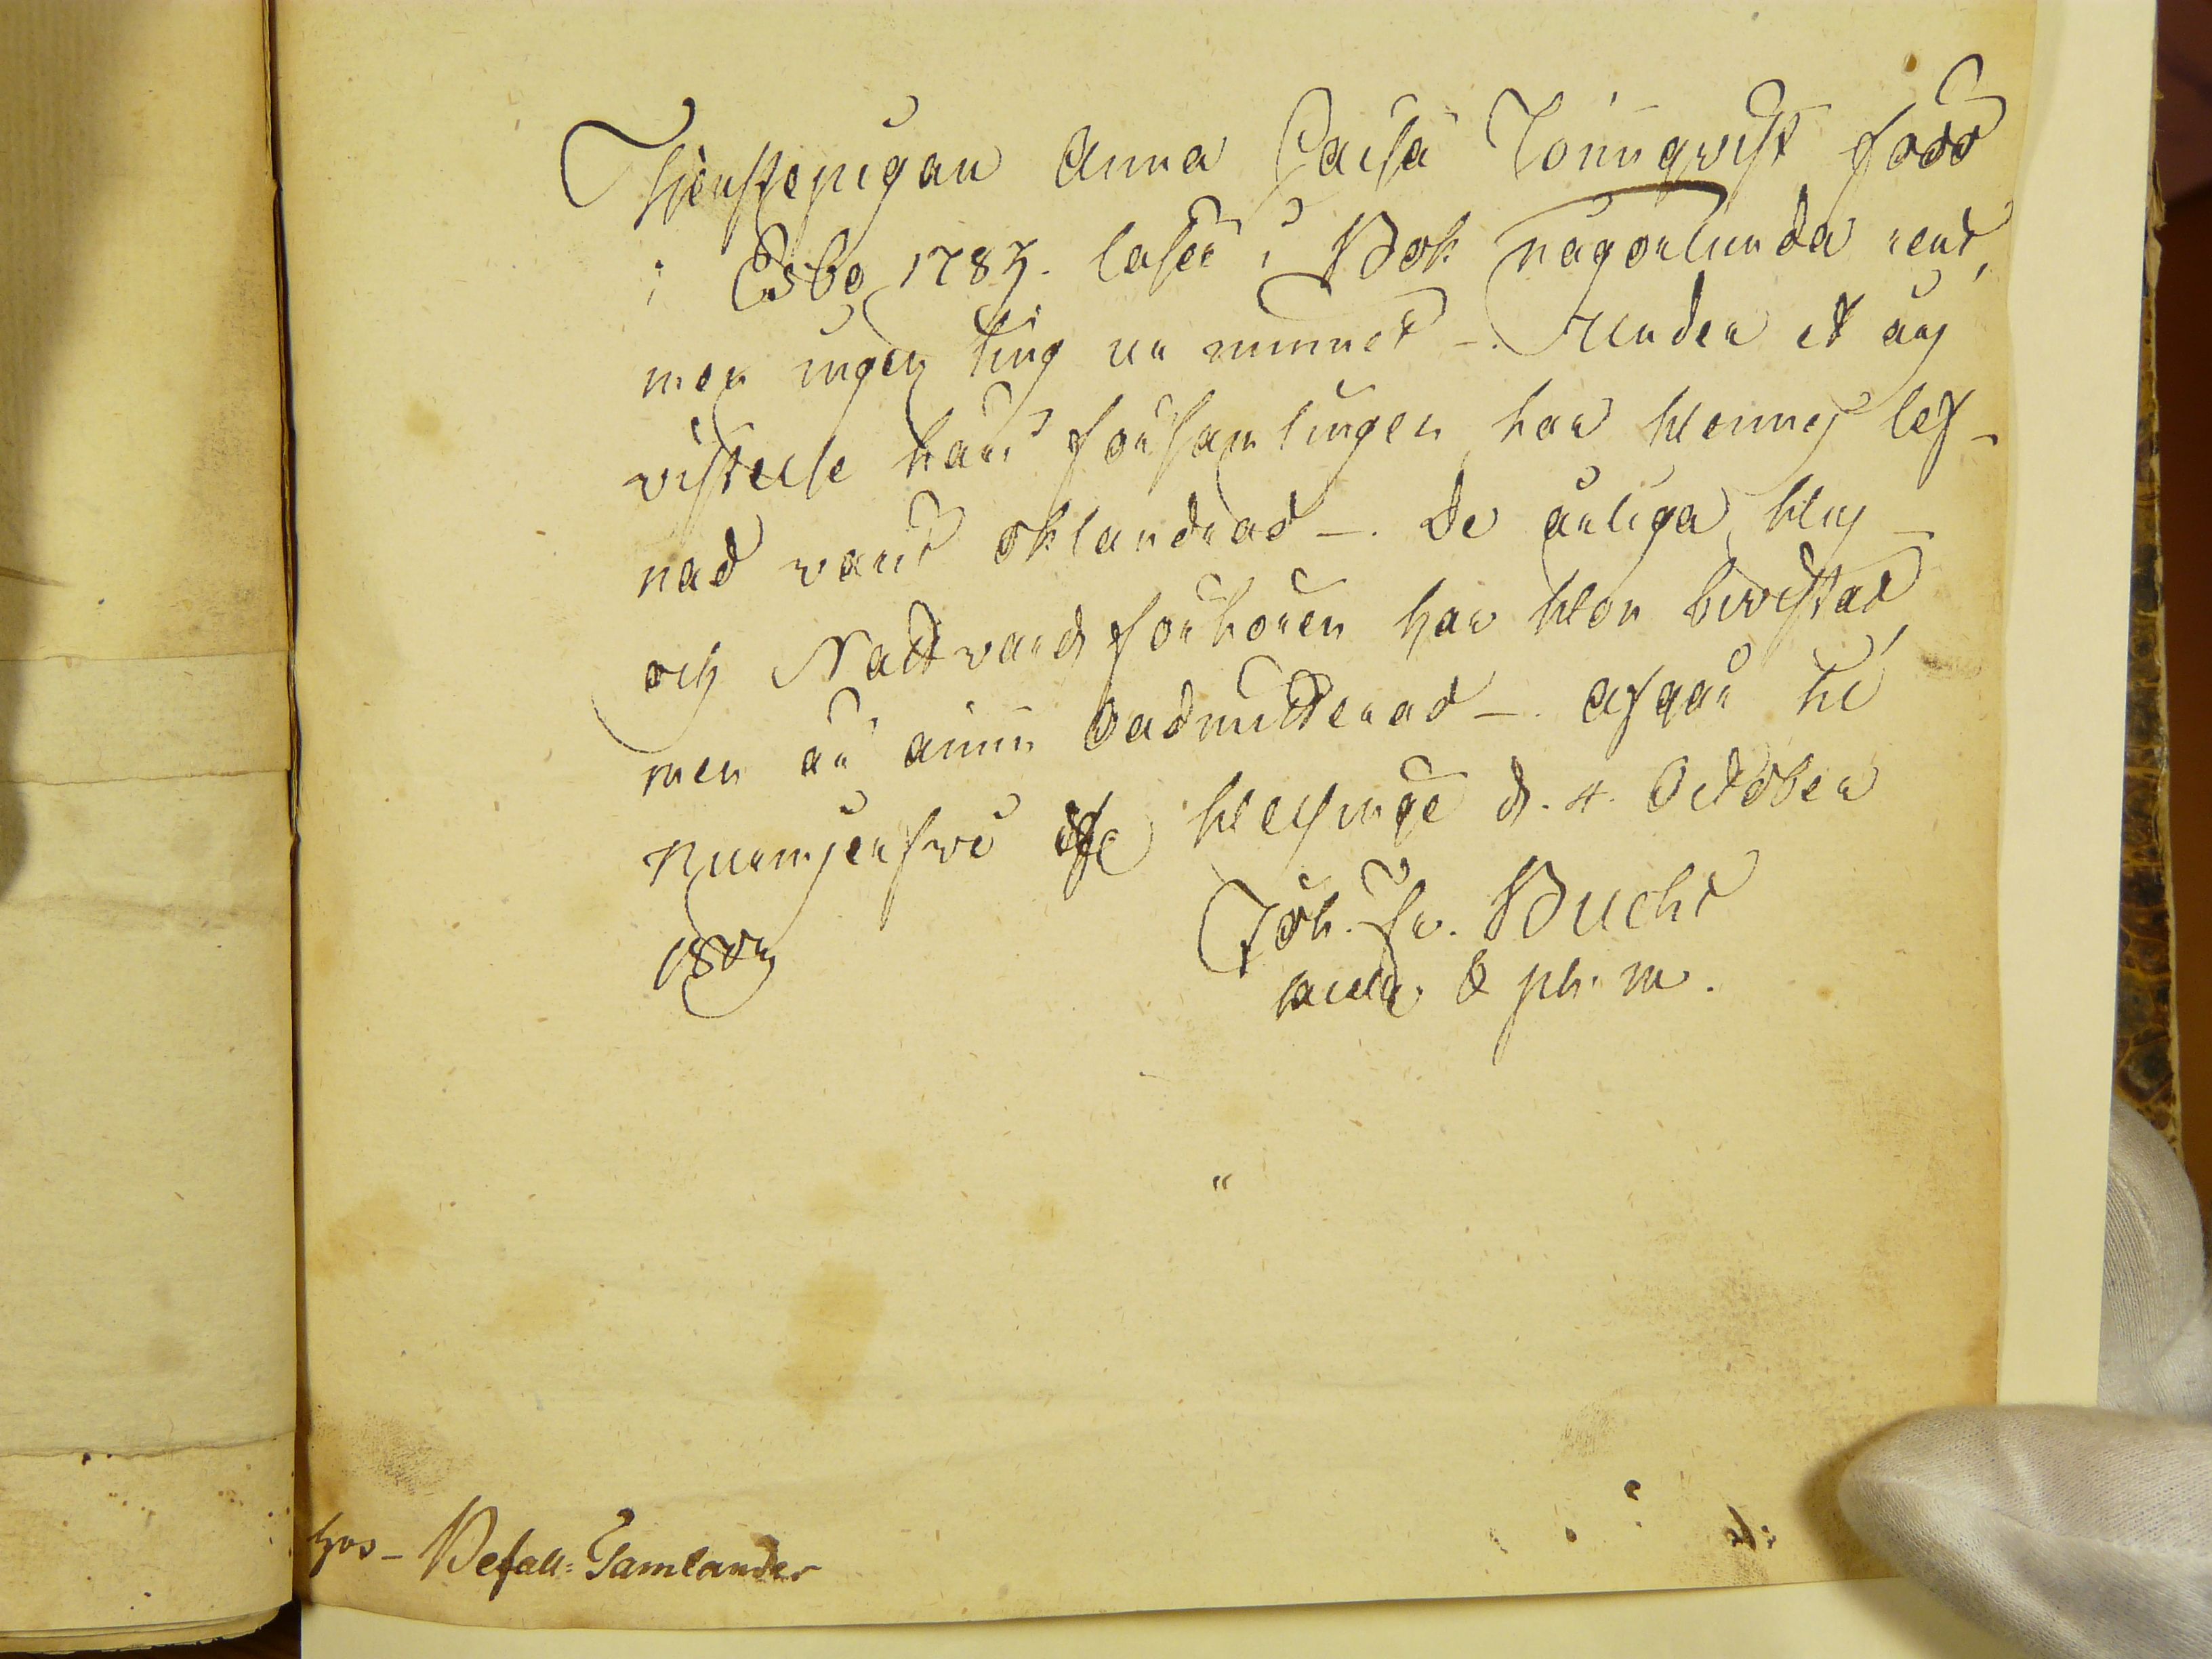 Tjenstepigan Anna Caisa Lönnqvist född
i Esbo 1783. läser i Bok någorlunda rent,
men ingen ting ur minnet –. Under et års
vistelse här i församlingen har hennes lef-
nad varit oklandrad –. De årliga hus-
och Nattvards förhören har hon bevistat,
men är ännu oadmitterad –. afgår til
Nurmijerfvi Helsinge d. 4. October
Joh. Fr. Bucht
& ph. m.
hos – Befall: Tamlander